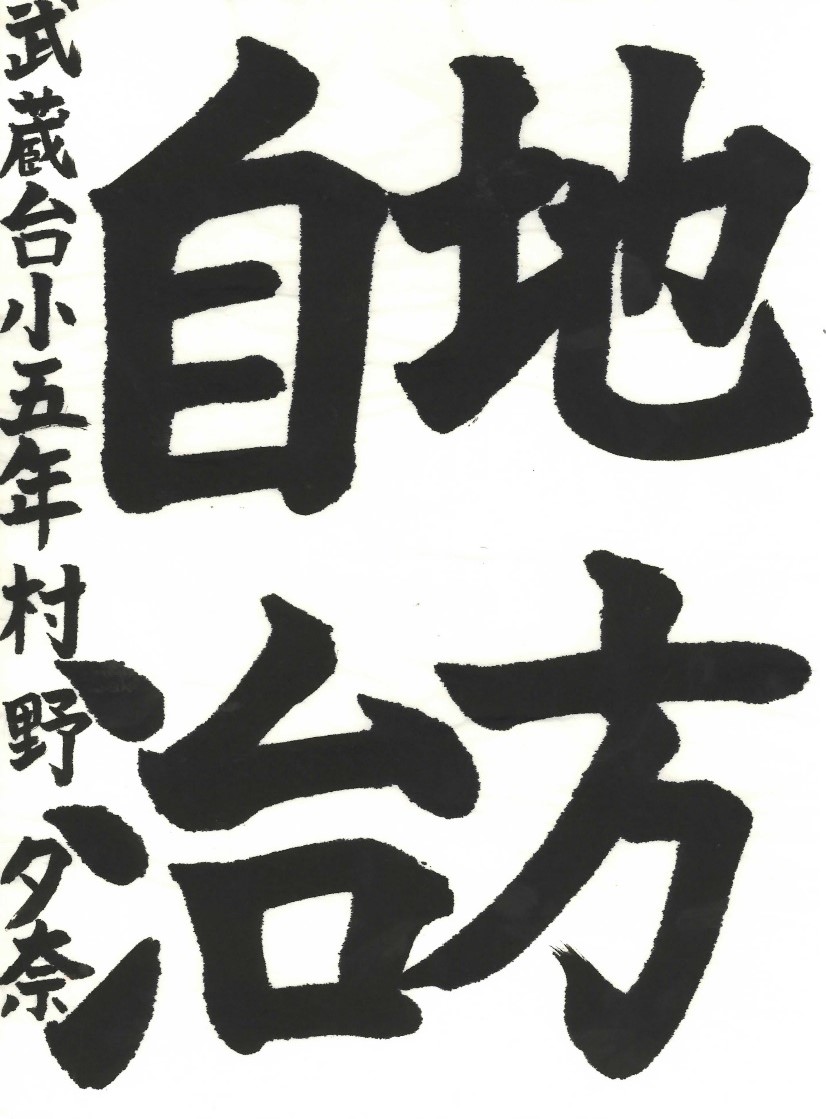 地方
自治
武蔵台小五年村野夕奈